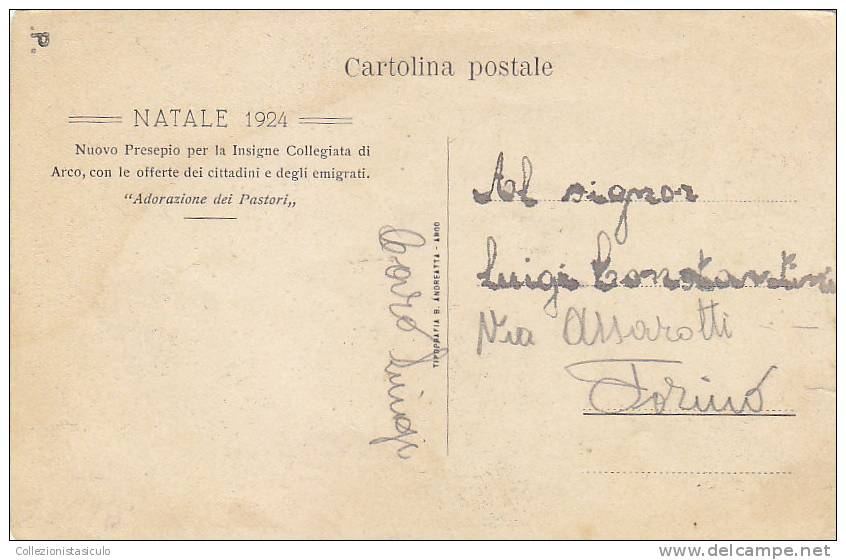 P.
Cartolina postale
NATALE 1924
Nuovo Presepio per la Insigne Collegiata di
Arco, con le offerte dei cittadini e degli emigrati.
"Adorazione dei Pastori„
TIPOGRAFIA B. ANDREATTA - ARCO
Caro Luigi
Al signor
Luigi Constantini
Via Assarotti
Torino
Collezionistasiculo
delcampe.net